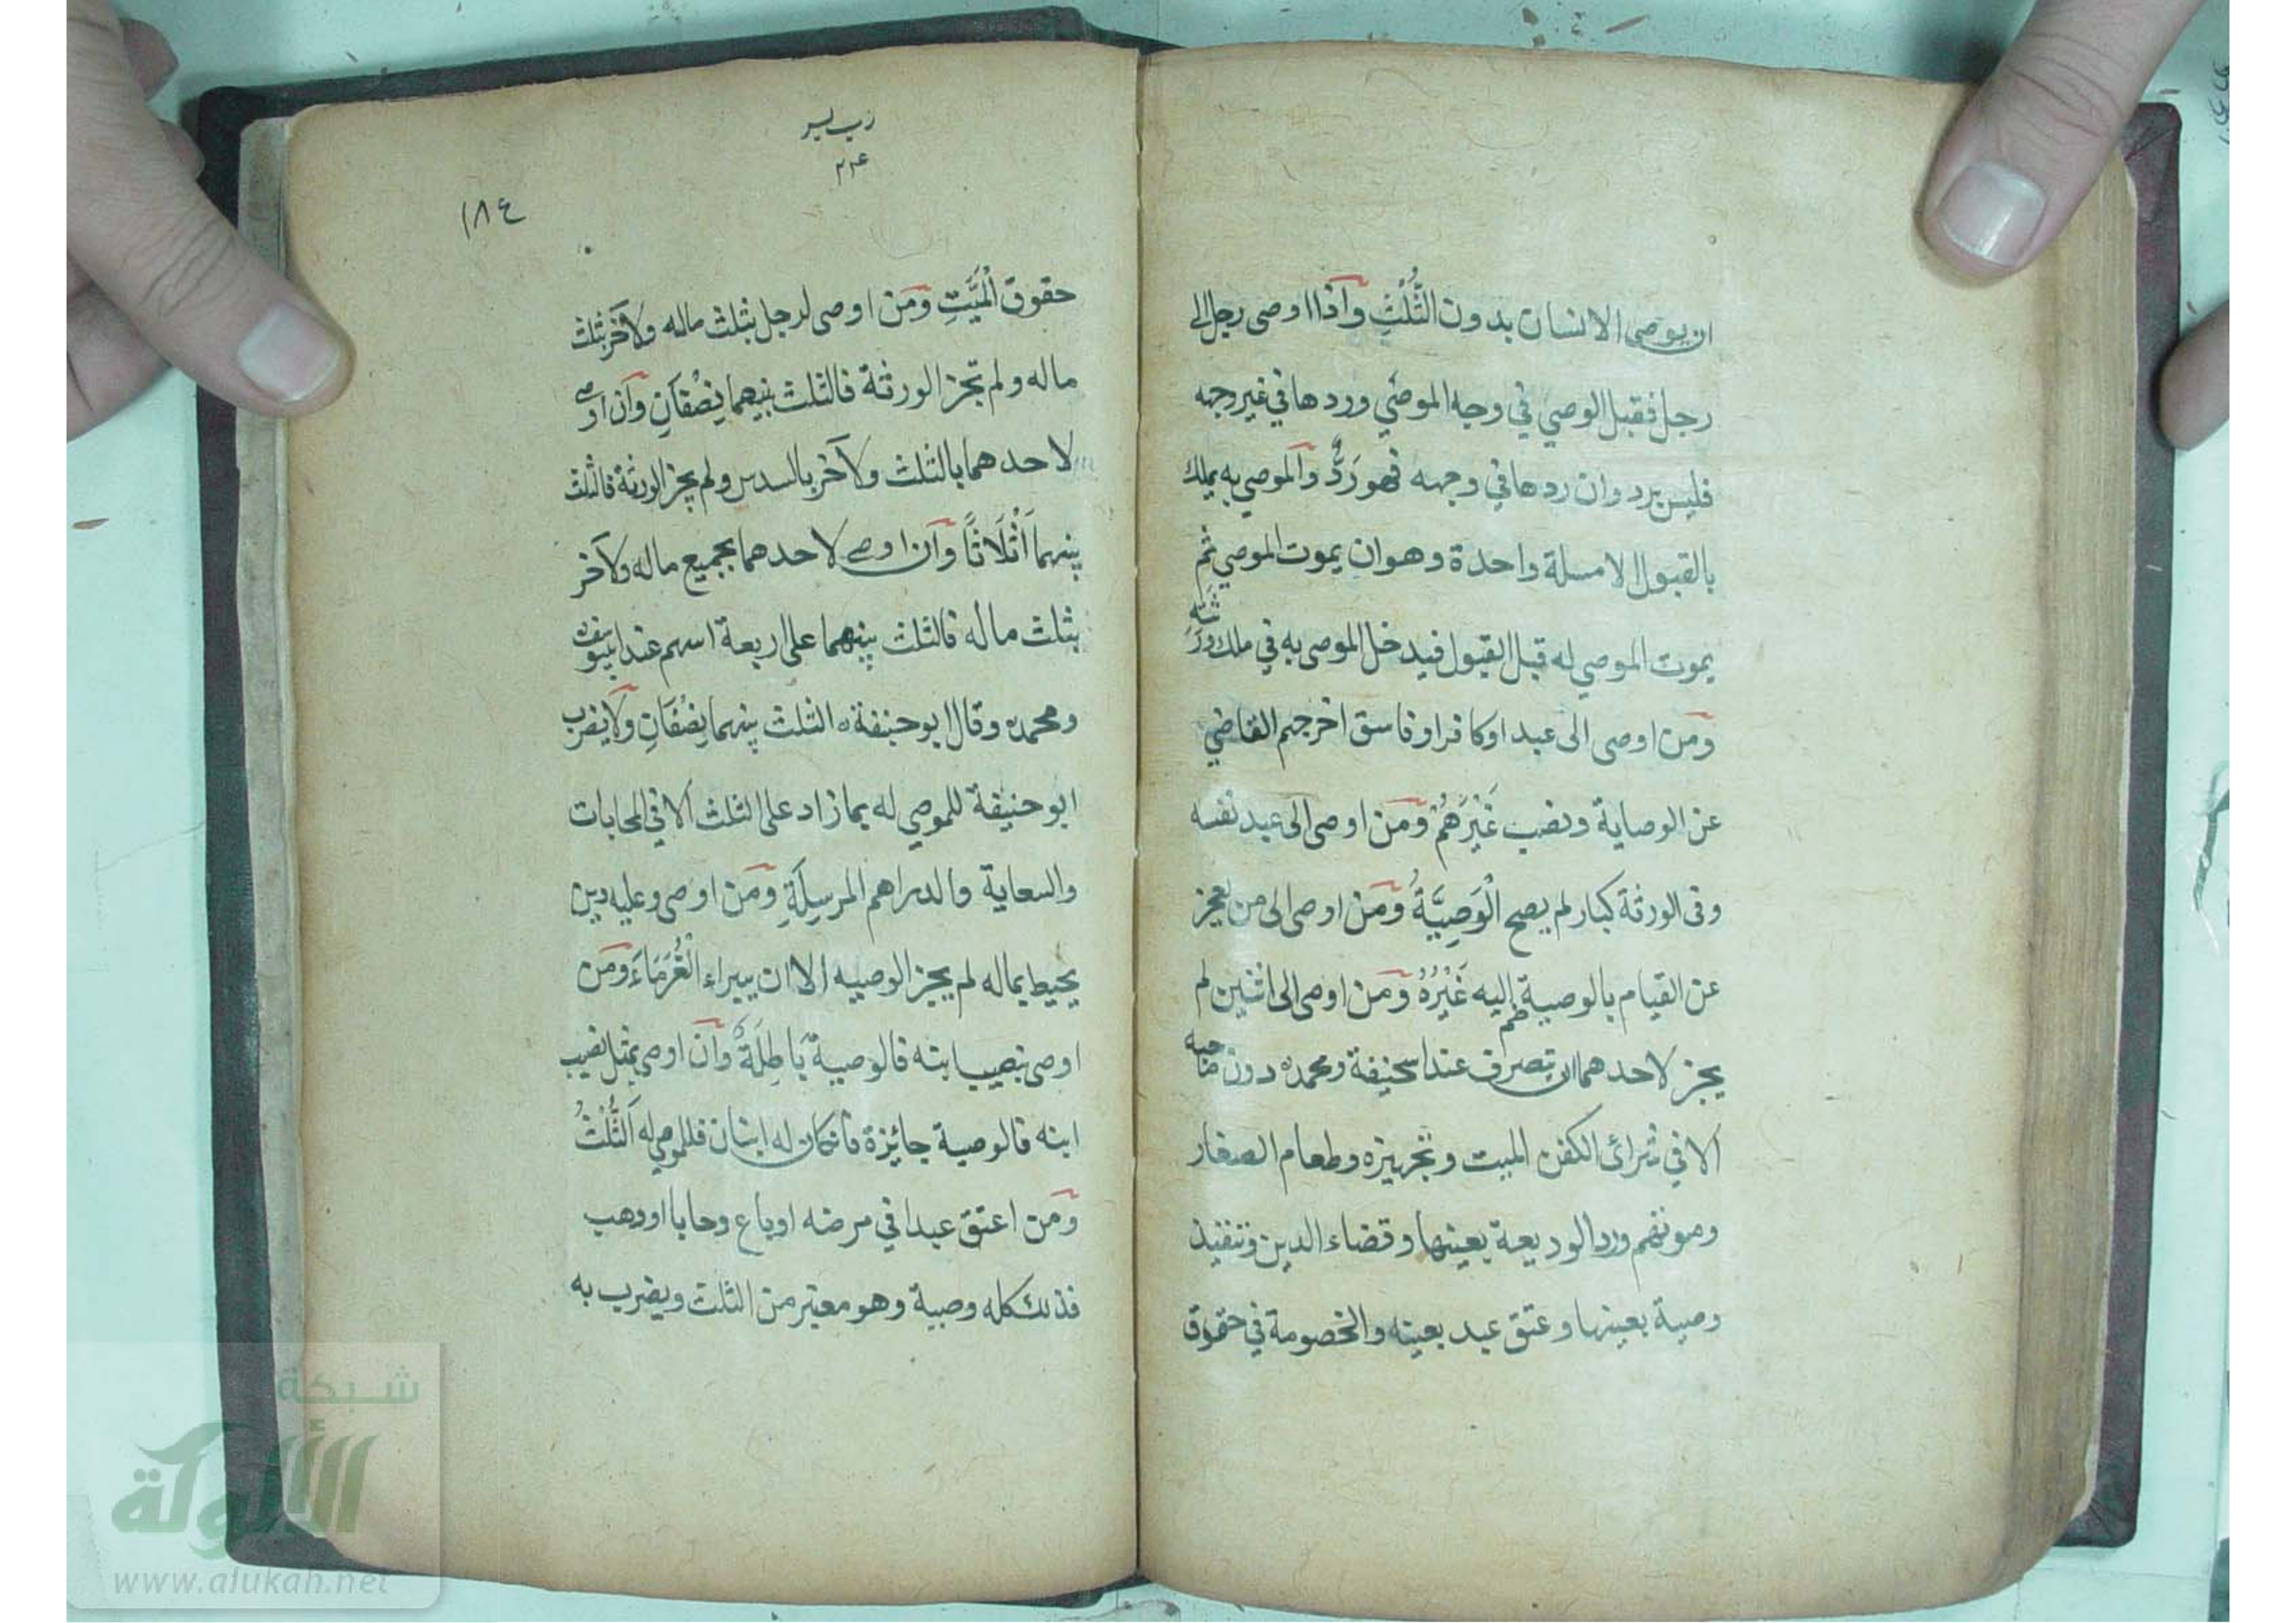 ان يوصي الانسان بدون الثُّلُثِ وَاذا اوصى رجل الى
رجل فقبل الوصي في وجه الموصي وردها في غير وجهه
فليس برد وان ردها في وجهه فهو رَدٌّ والموصي به يملك
بالقبول الا مسلة واحدة وهو ان يموت الموصي ثم
يموت الموصي له قبل القبول فيدخل الموصى به في ملك وَرَثَتِهِ
وَمَن اوصى الى عبد او كافر او فاسق اخرجهم القاضي
عن الوصاية ونصب غَيْرَهُمْ وَمَن اوصى الى عبد نفسه
وفى الورثة كبار لم يصح الْوَصِيَّةُ وَمَن اوصى الى من يعجز
عن القيام بالوصية ضم إليه غَيْرُهُ وَمَن اوصى الى اثنين لم
يجز لاحدهما ان يتصرف عند ابيحنيفة ومحمده دون صاحبه
الا في شرائ الكفن الميت وتجهيزه وطعام الصغار
ومونتهم ورد الوديعة بعينها وقضاء الدين وتنفيذ
وصية بعينها وعتق عبد بعينه والخصومة في حقوق
رب يسر
٢٣٤
١٨٤
حقوق الْمَيِّتِ وَمَن اوصى لرجل بثلث ماله ولآخر بثلث
ماله ولم تجز الورثة فالثلث بينهما نِصْفَانِ وَان اوصى
لاحدهما بالثلث ولآخر بالسدس ولم يجز الورثة فالثلث
بينهما اَثْلَاثًا وَان اوصى لاحدهما بجميع ماله ولآخر
بثلث ماله فالثلث بينهما على اربعة اسهم عند ابييوسف
ومحمده وقال ابو حنيفة ه الثلث بينهما نِصْفَانِ وَلا يضرب
ابو حنيفة للموصي له بما زاد على الثلث الا في المحابات
والسعاية والدراهم المرسِلَةِ وَمَن اوصى وعليه دين
يحيط بماله لم يجيز الوصيه الا ان يبيراء الْغُرَمَاءَ وَمَن
اوصى بنصيب ابنه فالوصية بَاطِلَةٌ وَان اوصى بمثل نصيب
ابنه فالوصية جائزة فان كان له ابنان فللموصي له اَلثُّلُثُ
وَمَن اعتق عبدا في مرضه او باع وحابا او وهب
فذلك كله وصية وهو معتبر من الثلث ويضرب به
شبكة
الألوكة
www.alukah.net